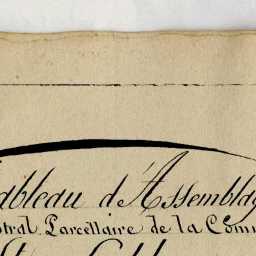 ableau d'Assemblag
stral Parcellaire de la Comm